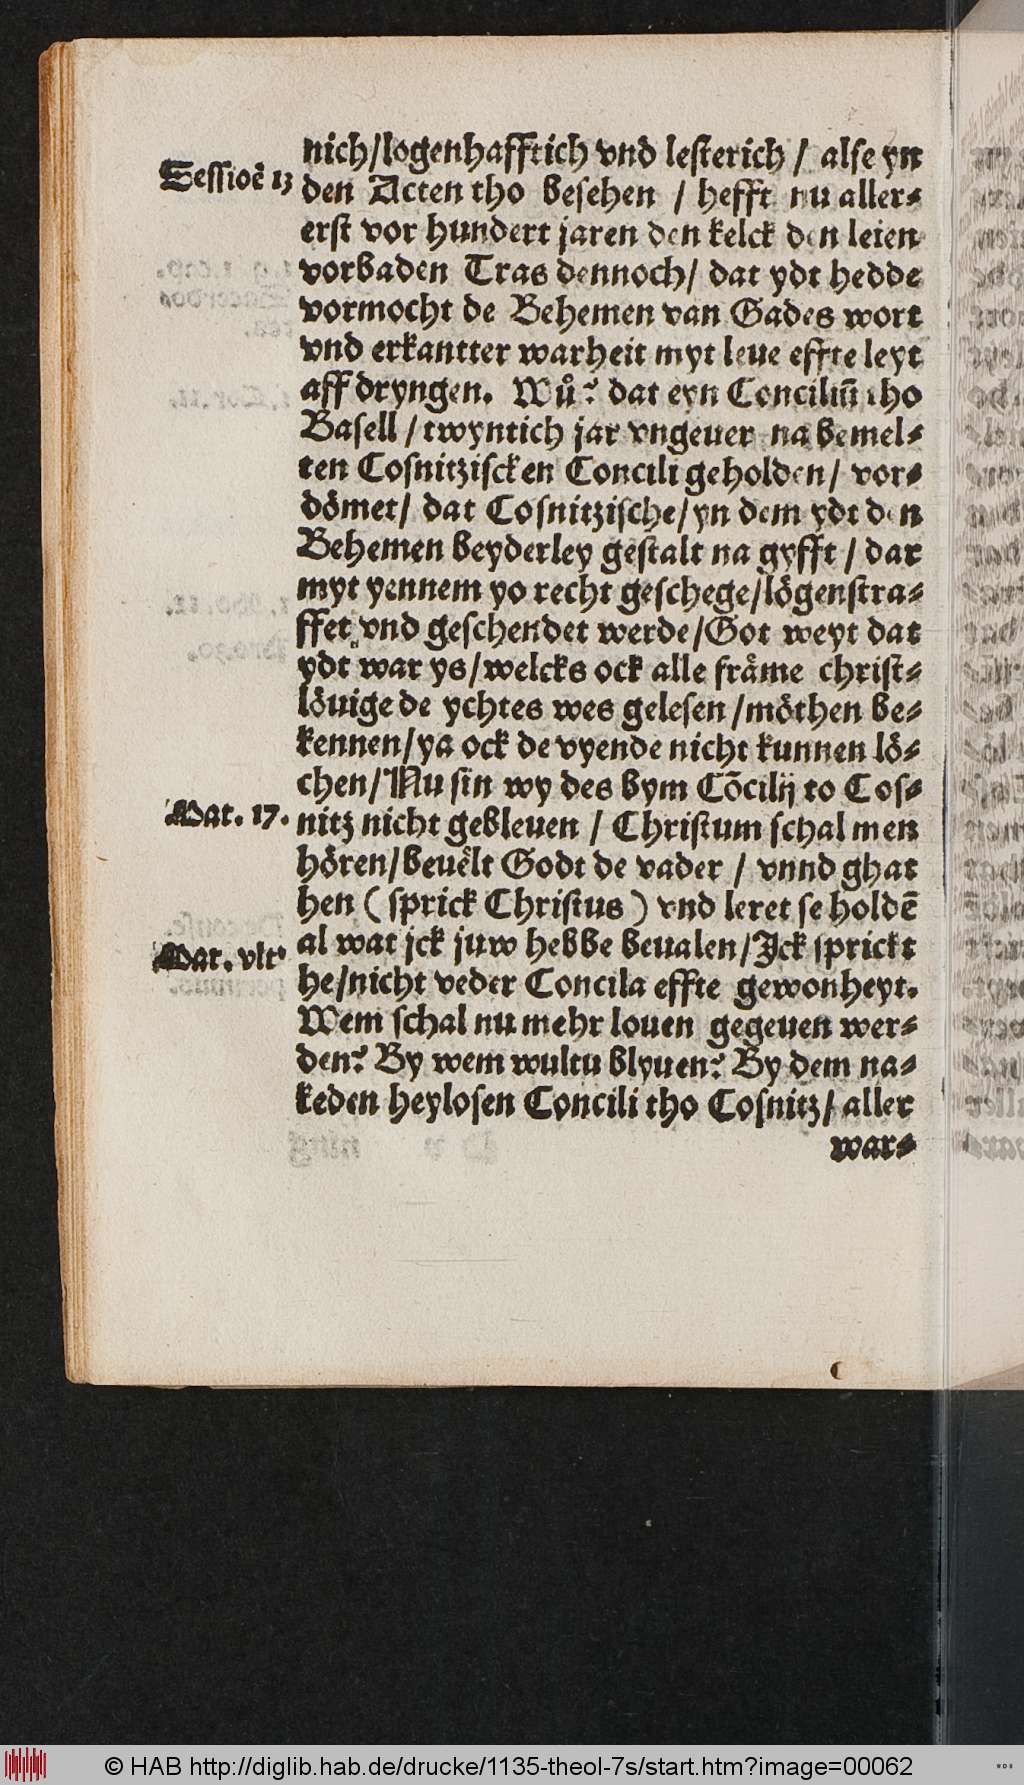 nich/logenhafftich vnd lesterich / alse yn
Sessioē 13
den Acten tho besehen / hefft nu aller⸗
erst vor hundert jaren den kelck den leien
vorbaden Tras dennoch/ dat ydt hedde
vormocht de Behemen van Gades wort
vnd erkantter warheit myt leue effte leyt
aff dryngen. Wů? dat eyn Conciliū tho
Basell / twyntich jar vngeuer na bemel⸗
ten Cosnitziscken Concili geholden/ vor⸗
dömet/ dat Cosnitzische/yn dem ydt den
Behemen beyderley gestalt na gyfft / dat
myt yennem yo recht geschege/lögenstra⸗
ffet vnd geschendet werde/Got weyt dat
ydt war ys/welcks ock alle fråme christ⸗
lövige de ychtes wes gelesen/möthen be⸗
kennen/ya ock de vyende nicht kunnen lö⸗
chen/Nu sin wy des bym Cōcilij to Cos⸗
Mat. 17.
nitz nicht gebleuen / Christum schal men
hören/beuelt Godt de vader / vnnd ghat
hen ( sprick Christus ) vnd leret se holdē
al wat jck juw hebbe beualen/Jck sprickt
Mat. vlt
he/nicht veder Concila effte gewonheyt.
Wem schal nu mehr louen gegeuen wer⸗
den? By wem wultu blyuen? By dem na⸗
keden heylosen Concili tho Cosnitz/ aller
war⸗
© HAB http://diglib.hab.de/drucke/1135-theol-7s/start.htm?image=00062